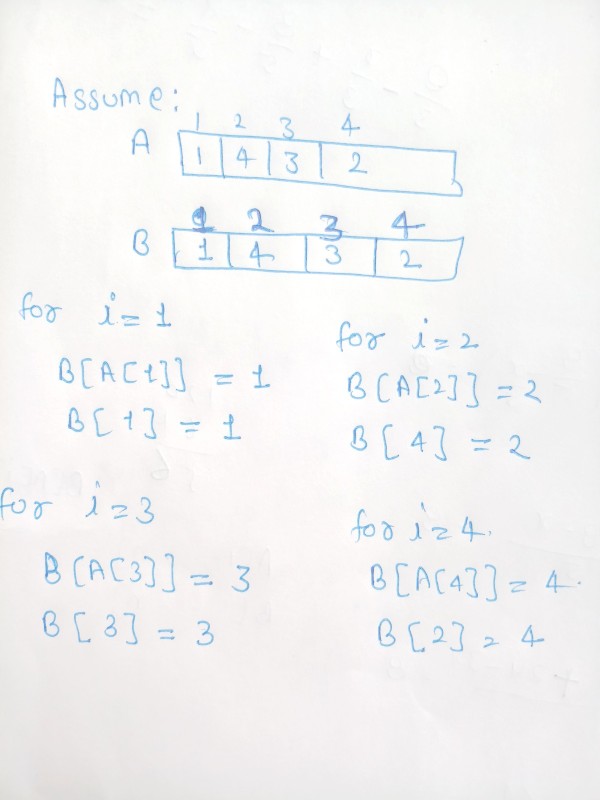 Assume:
1 2 3 4
A 1 4 3 2
1 2 3 4
B 1 4 3 2
for i=1
B[A[1]] = 1
B[1] = 1
for i=2
B[A[2]] = 2
B[4] = 2
for i=3
B[A[3]] = 3
B[3] = 3
for i=4.
B[A[4]] = 4.
B[2] = 4